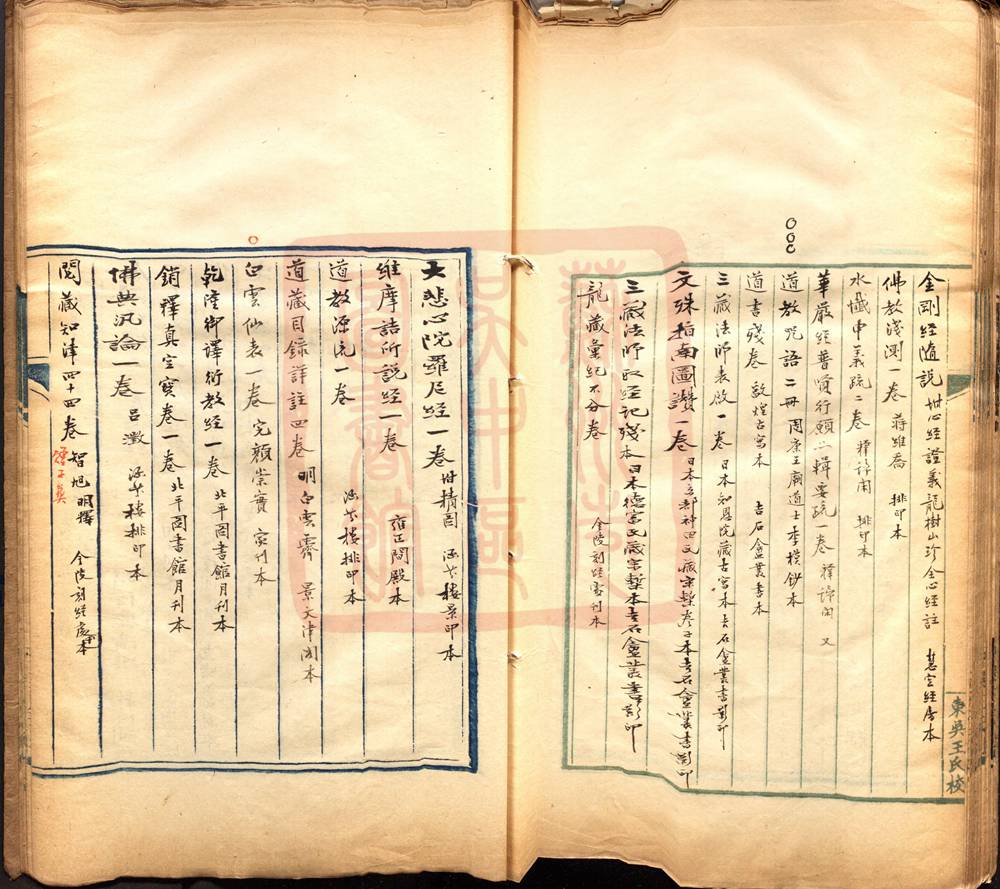 金剛經隨說 坿心經證義龍樹山珍金心經註 慧空經房本
佛教淺測一卷 蔣維喬 排印本
水懺申義疏二卷 釋諦閑 排印本
華嚴經普賢行願品輯要疏一卷 釋諦閑 又
道教咒語二冊 周康王廟道士李模鈔本
道書殘卷 敦煌古寫本 吉石盦叢書本
三藏法師表啟一卷 日本知恩院藏古寫本吉石盦叢書影印
文殊指南圖讚一卷 日本京都神田氏藏宋槧本吉石盦叢書影印
三藏法師取經記殘本 日本德富氏藏宋槧本吉石盦叢書影印
龍藏彙紀不分卷 金陵刻經處刊本
東吳王氏校
大悲心陀羅尼經一卷 坿精圖 涵芬樓景印本
維摩詰所說經一卷 雍正閣殿本
道教源流一卷 涵芬樓排印本
道藏目錄詳註四卷 明白雲霽 景文津閣本
白雲仙表一卷 完顏崇實 家刊本
乾隆御譯衍教經一卷 北平圖書館月刊本
銷釋真空寶卷一卷 北平圖書館月刊本
佛典汎論一卷 呂澂 涵芬樓排印本
閱藏知津四十四卷 智旭 明釋 金陵刻經處本